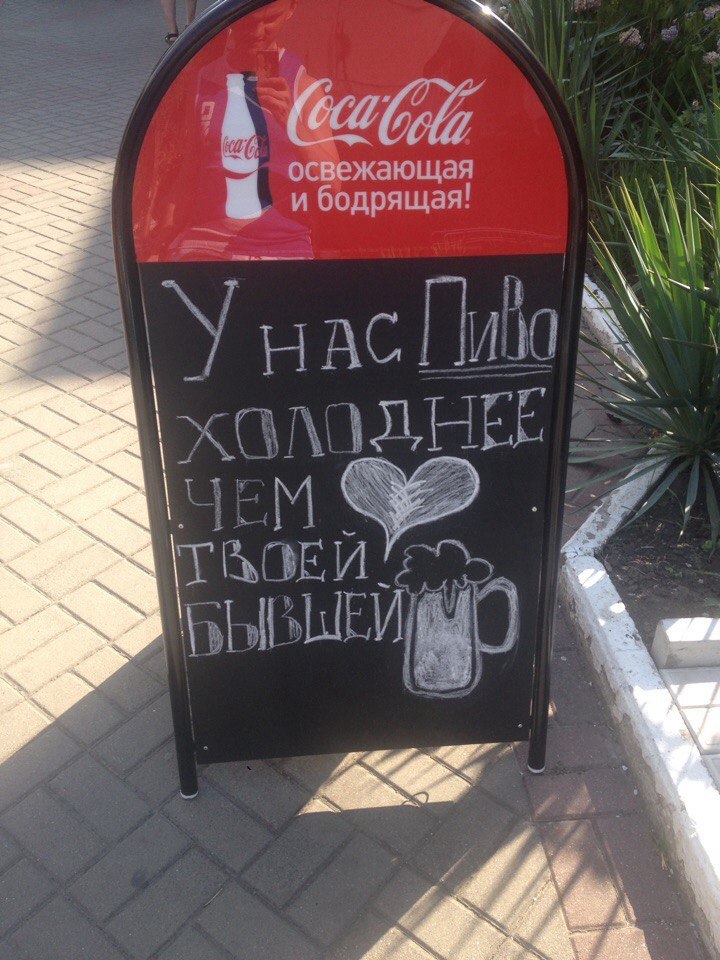 Coca-Cola
Coca-Co
освежающая
и бодрящая!
У нас Пиво
холоднее
чем
твоей
бывшей